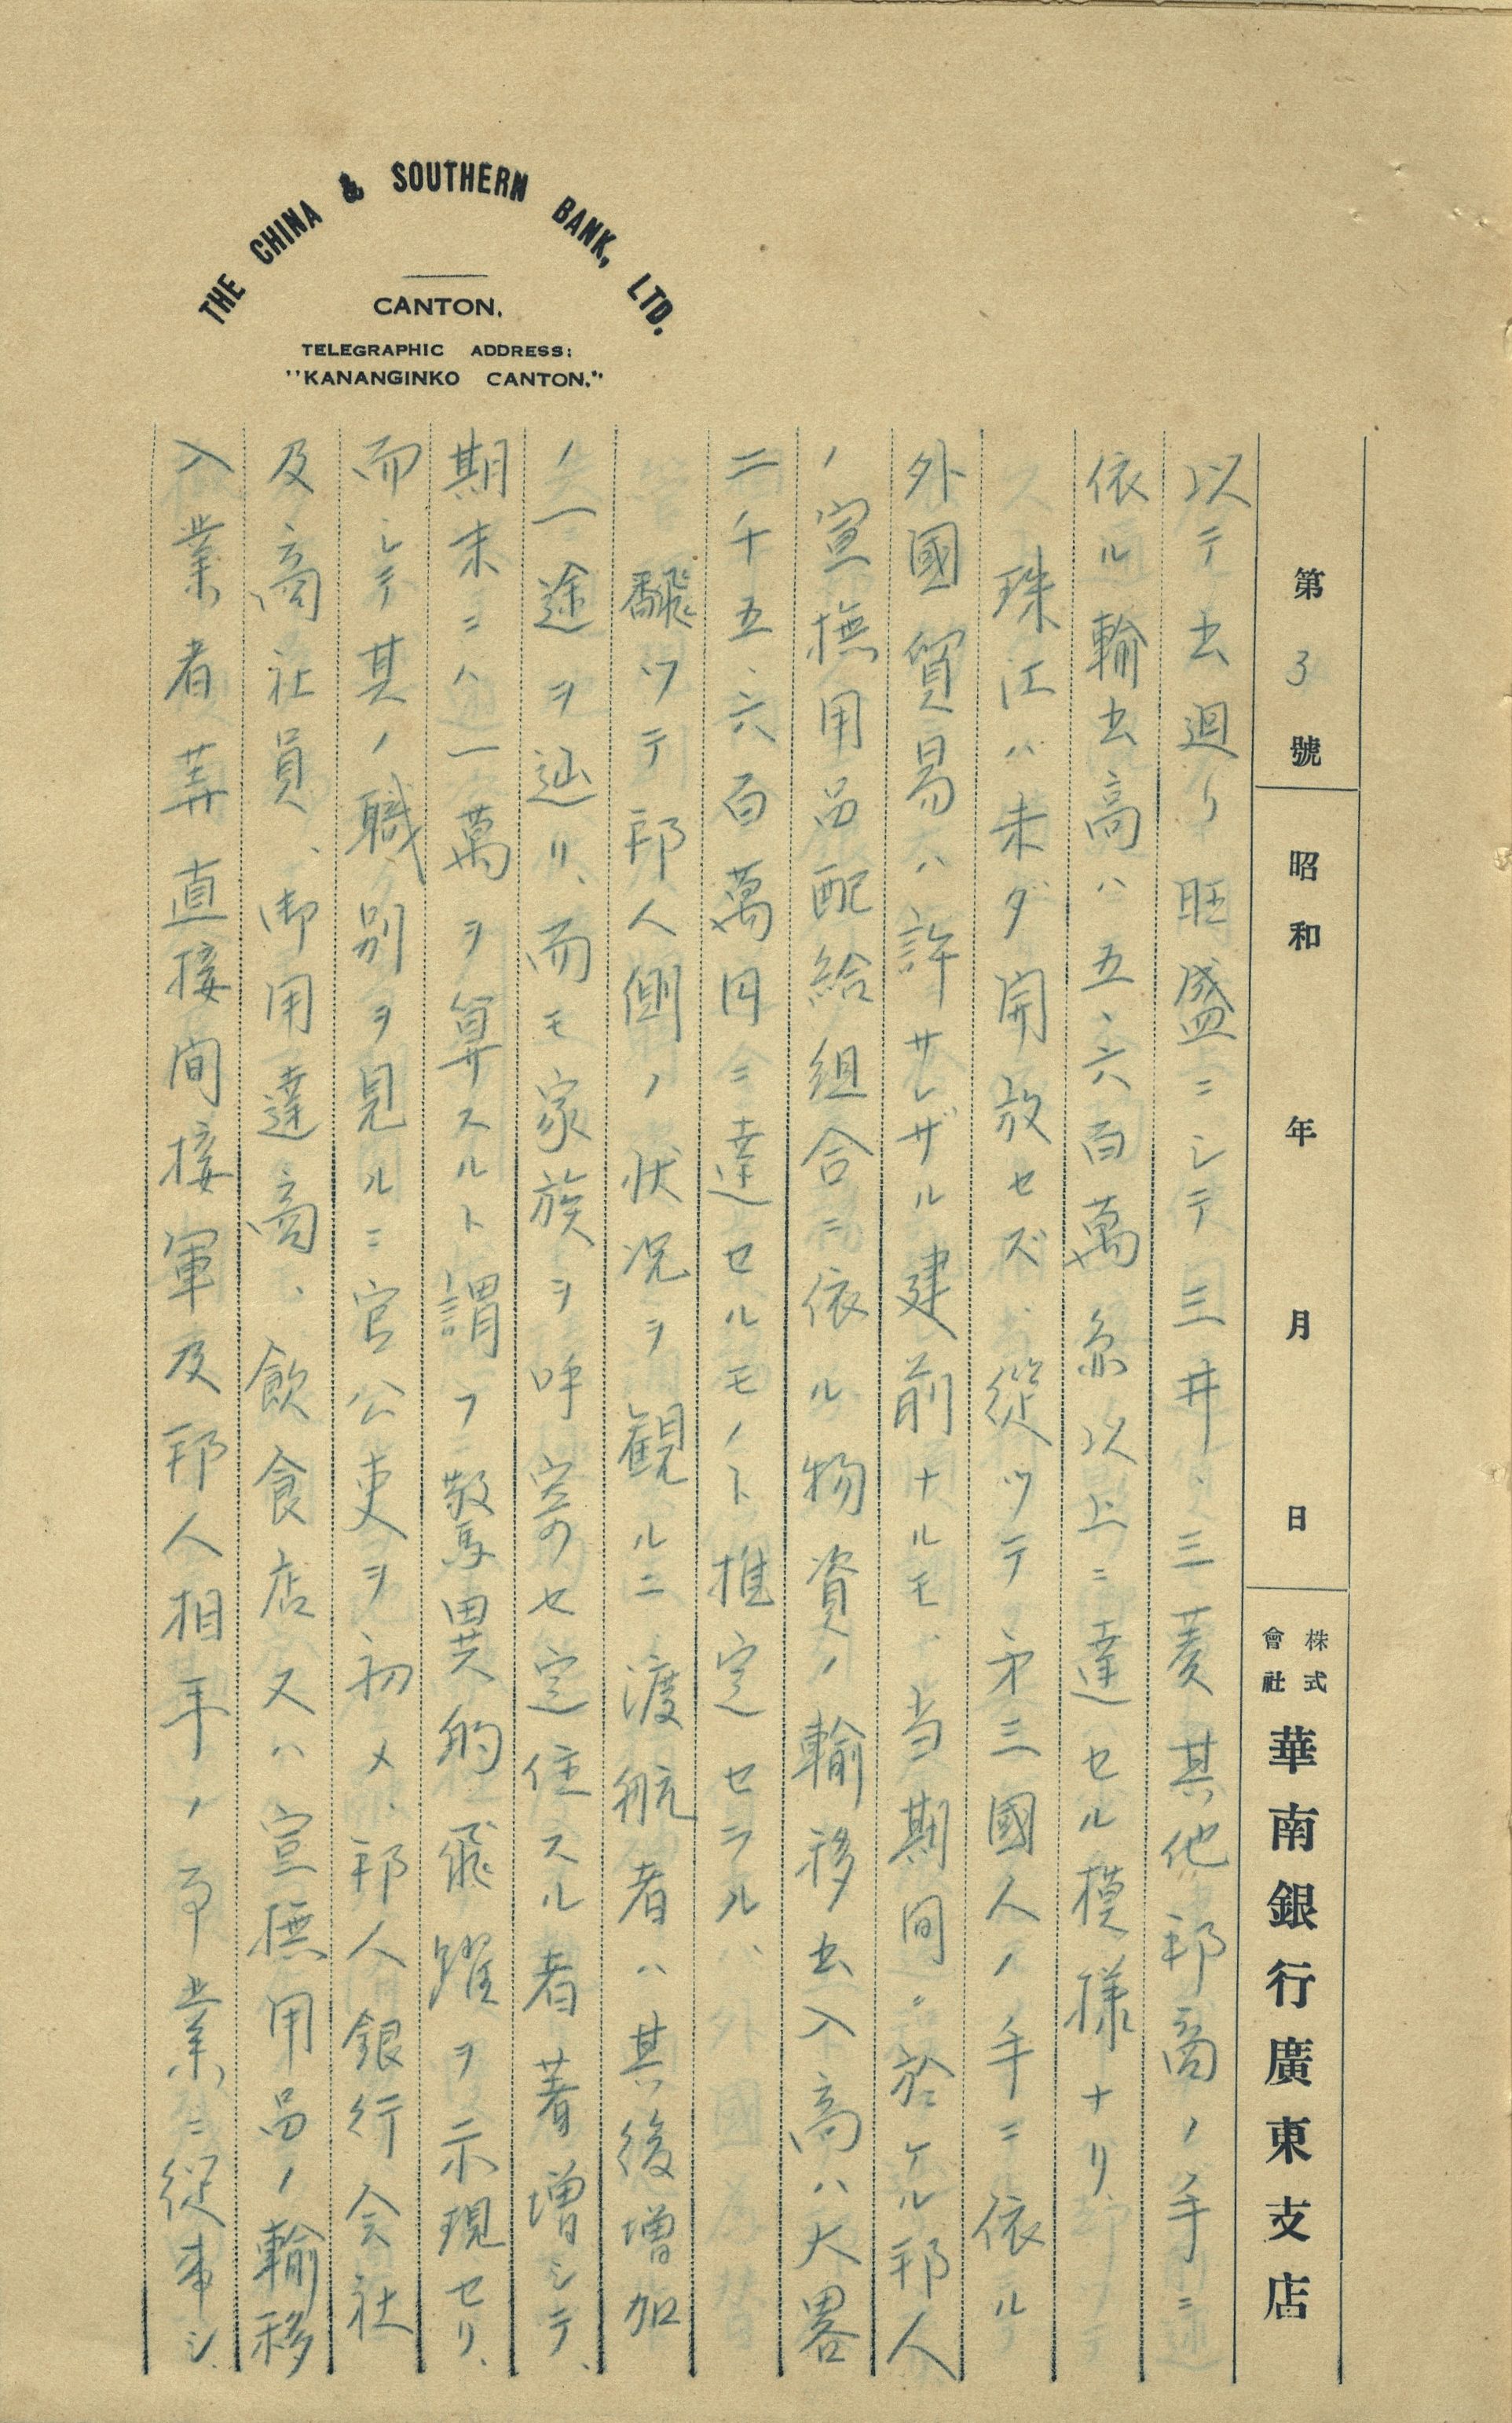 THE CHINA & SOUTHERN BANK, LTD.
CANTON.
TELEGRAPHIC ADDRESS:
"KANANGINKO CANTON."
第 3 號 昭和 年 月 日 株式會社 華南銀行廣東支店
以テ出廻リ旺盛ニシテ三井、三菱其他邦商ノ手ニ
依ル輸出高ハ五、六百萬弗以上ニ達セル模様ナリ、
珠江ハ未ダ開放セズ、從ツテ第三國人ノ手ニ依ル
外國貿易ハ許サレザル建前ナルモ、当期間ニ於ケル邦人
ノ宣撫用品配給組合ニ依ル物資ノ輸移出入高ハ大畧
二千五、六百萬円ニ達セルモノト推定セラル、
飜ツテ邦人側ノ状況ヲ観ルニ渡航者ハ其後増加
ノ一途ヲ辿リ、而モ家族ヲ呼寄セ定住スル者著増シテ、
期末ニハ一萬ヲ算スルト謂フ驚異的飛躍ヲ示現セリ、
而シテ其ノ職別ヲ見ルニ官公吏ヲ初メ、邦人銀行会社
及商社員、御用達商、飲食店又ハ宣撫用品ノ輸移
入業者等直接間接軍及邦人相手ノ事業ニ従事シ、